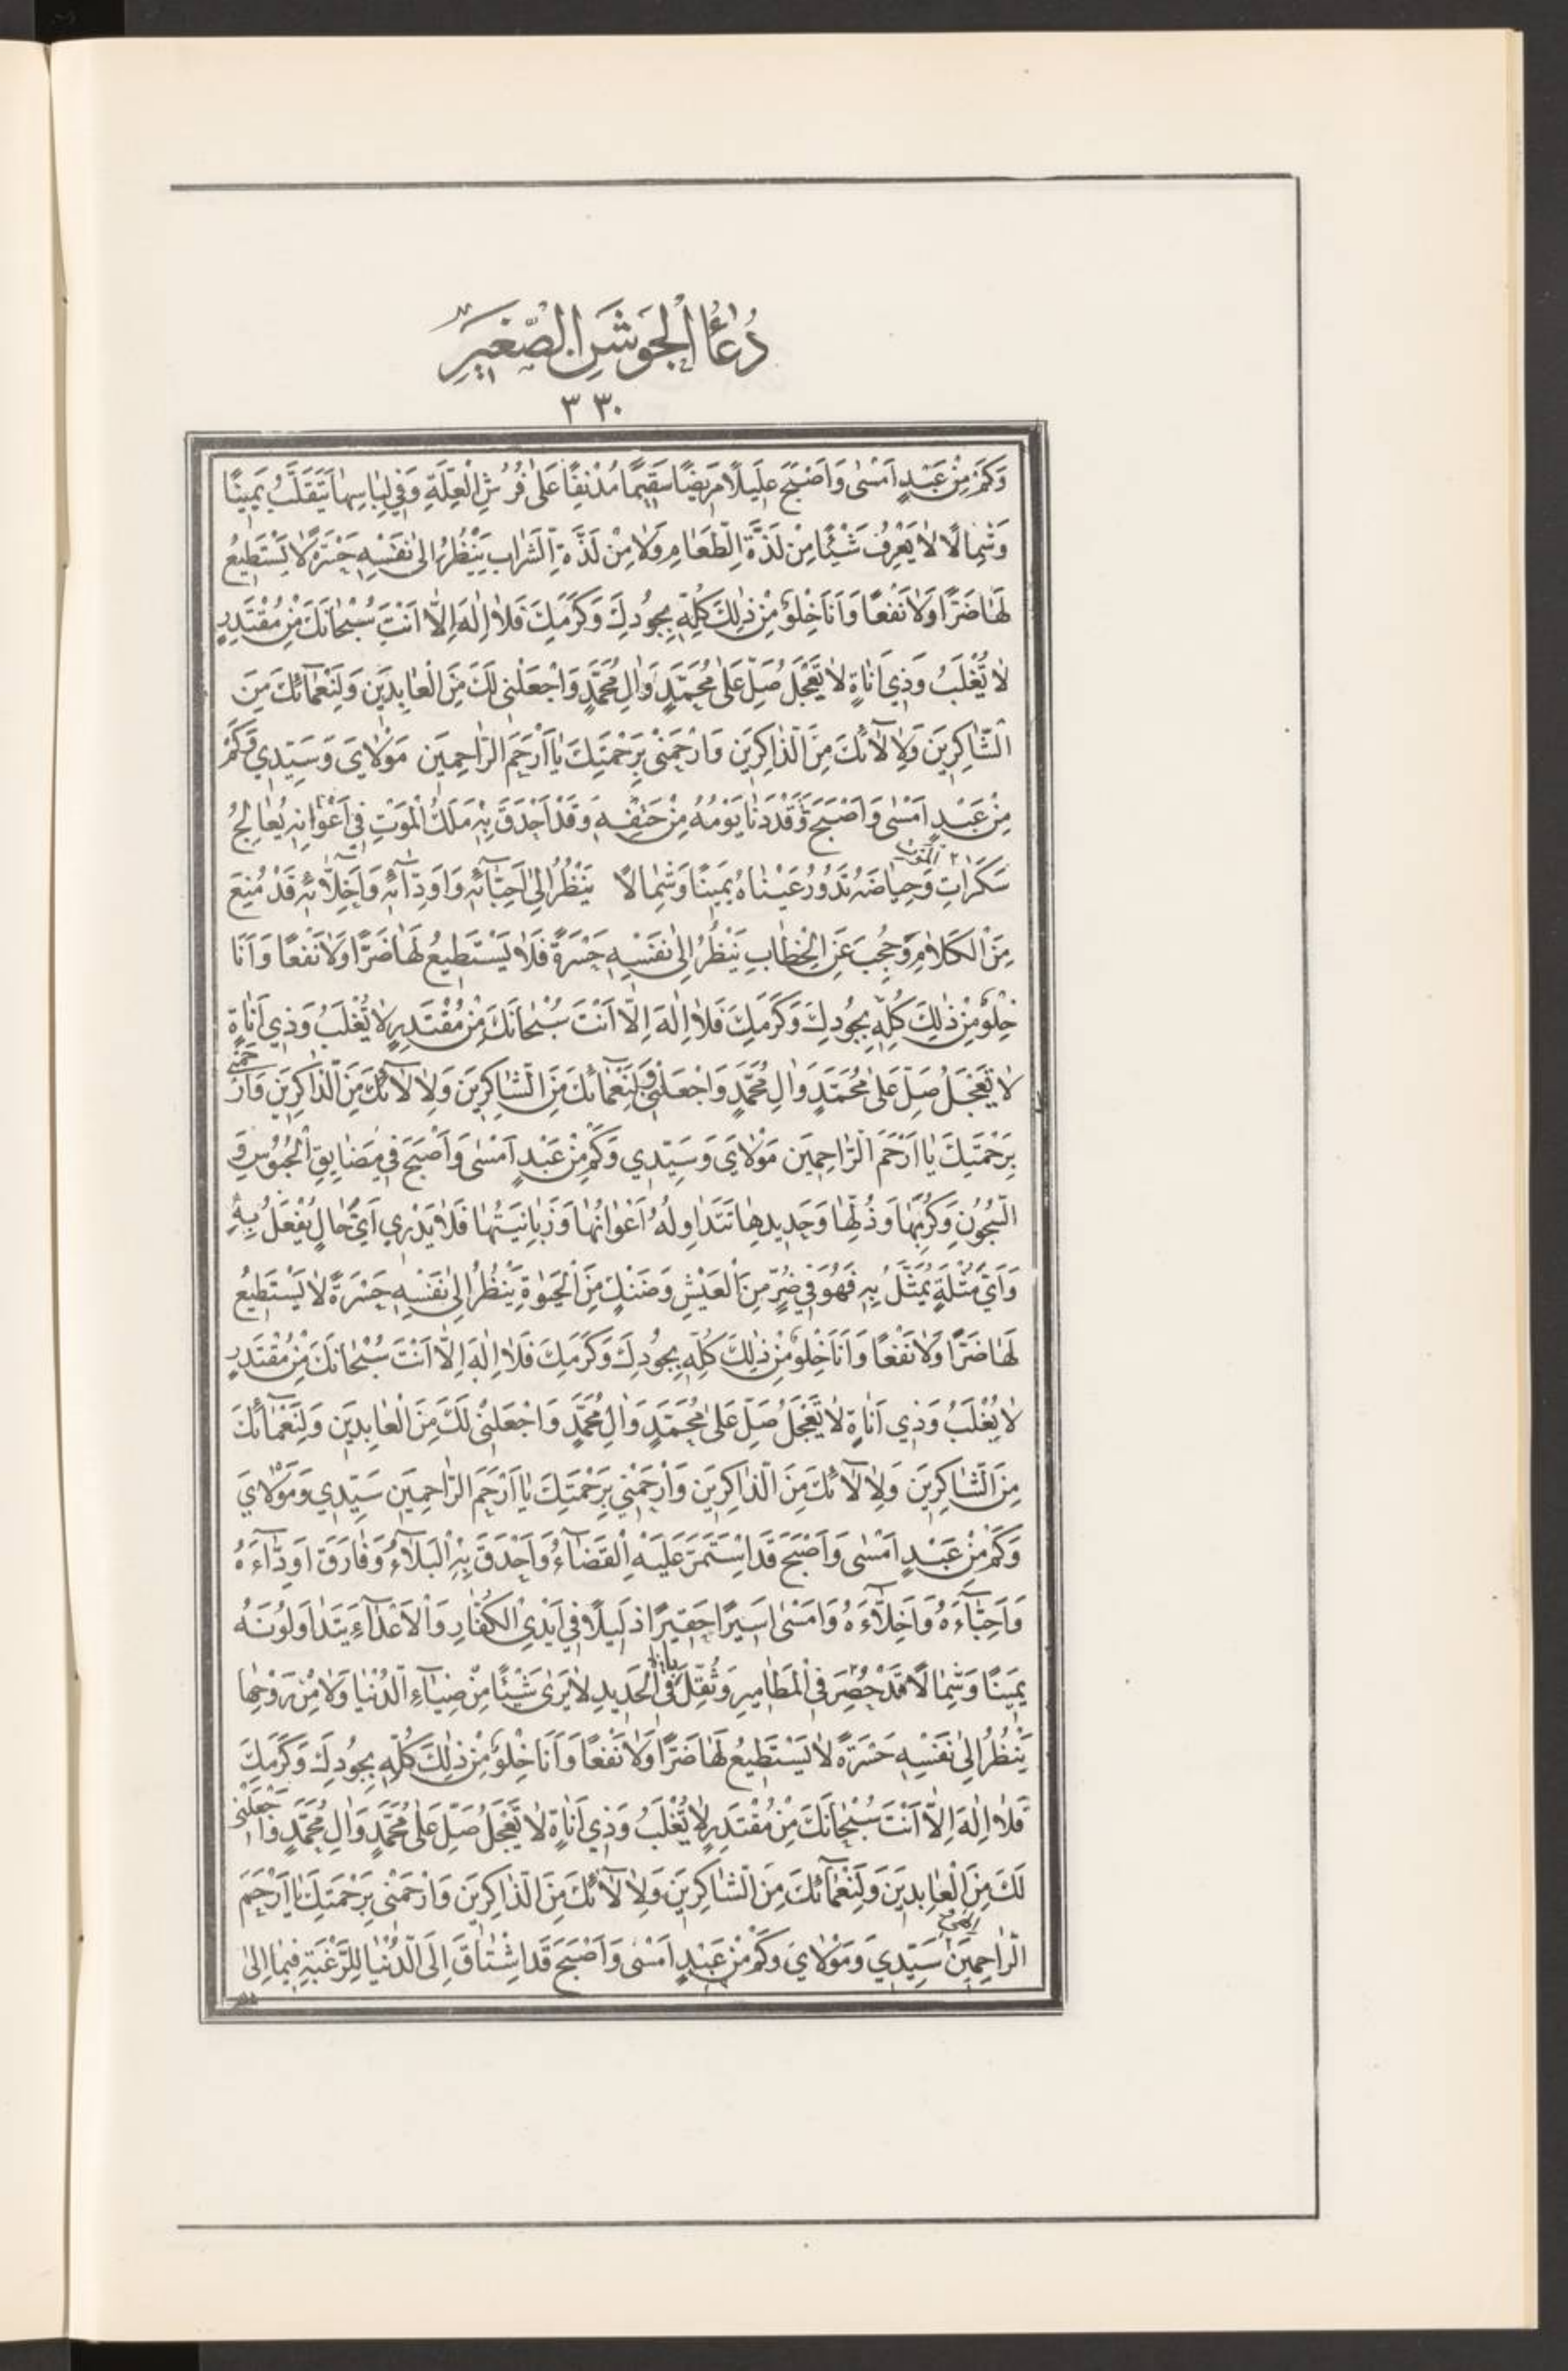 دُعٰاءُ الْجَوْشَنِ الصَّغِيرِ
٣٣٠
وَكَمْ مِنْ عَبْدٍ اَمْسٰى وَاَصْبَحَ عَلِيلًا مَرِيضًا سَقِيمًا مُدْنِفًا عَلٰى فُرُشِ الْعِلَّةِ وَفِي لِبٰاسِهٰا يَتَقَلَّبُ يَمِينًا
وَشِمٰالًا لٰا يَعْرِفُ شَيْئًا مِنْ لَذَّةِ الطَّعٰامِ وَلٰا مِنْ لَذَّةِ الشَّرٰابِ يَنْظُرُ اِلٰى نَفْسِهِ حَسْرَةً لٰا يَسْتَطِيعُ
لَهٰا ضَرًّا وَلٰا نَفْعًا وَاَنَا خِلْوٌ مِنْ ذٰلِكَ كُلِّهِ بِجُودِكَ وَكَرَمِكَ فَلٰا اِلٰهَ اِلّٰا اَنْتَ سُبْحٰانَكَ مِنْ مُقْتَدِرٍ
لٰا يُغْلَبُ وَذِي اَنٰاةٍ لٰا يَعْجَلُ صَلِّ عَلٰى مُحَمَّدٍ وَاٰلِ مُحَمَّدٍ وَاجْعَلْنِي لَكَ مِنَ الْعٰابِدِينَ وَلِنَعْمٰآئِكَ مِنَ
الشّٰاكِرِينَ وَلِاٰلٰآئِكَ مِنَ الذّٰاكِرِينَ وَارْحَمْنِي بِرَحْمَتِكَ يٰا اَرْحَمَ الرّٰاحِمِينَ مَوْلٰايَ وَسَيِّدِي وَكَمْ
مِنْ عَبْدٍ اَمْسٰى وَاَصْبَحَ وَقَدْ دَنٰا يَوْمُهُ مِنْ حَتْفِهِ وَقَدْ اَحْدَقَ بِهِ مَلَكُ الْمَوْتِ فِي اَعْوٰانِهِ يُعٰالِجُ
سَكَرٰاتِ الْمَوْتِ وَحِيٰاضَهُ تَدُورُ عَيْنٰاهُ يَمِينًا وَشِمٰالًا يَنْظُرُ اِلٰى اَحِبّٰآئِهِ وَاَوِدّٰآئِهِ وَاَخِلّٰآئِهِ قَدْ مُنِعَ
مِنَ الْكَلٰامِ وَحُجِبَ عَنِ الْخِطٰابِ يَنْظُرُ اِلٰى نَفْسِهِ حَسْرَةً فَلٰا يَسْتَطِيعُ لَهٰا ضَرًّا وَلٰا نَفْعًا وَاَنَا
خِلْوٌ مِنْ ذٰلِكَ كُلِّهِ بِجُودِكَ وَكَرَمِكَ فَلٰا اِلٰهَ اِلّٰا اَنْتَ سُبْحٰانَكَ مِنْ مُقْتَدِرٍ لٰا يُغْلَبُ وَذِي اَنٰاةٍ
لٰا يَعْجَلُ صَلِّ عَلٰى مُحَمَّدٍ وَاٰلِ مُحَمَّدٍ وَاجْعَلْنِي وَلِنَعْمٰآئِكَ مِنَ الشّٰاكِرِينَ وَلِاٰلٰآئِكَ مِنَ الذّٰاكِرِينَ وَارْحَمْنِي
بِرَحْمَتِكَ يٰا اَرْحَمَ الرّٰاحِمِينَ مَوْلٰايَ وَسَيِّدِي وَكَمْ مِنْ عَبْدٍ اَمْسٰى وَاَصْبَحَ فِي مَضٰايِقِ الْحُبُوسِ وَ
السُّجُونِ وَكُرَبِهٰا وَذُلِّهٰا وَحَدِيدِهٰا تَتَدٰاوَلُهُ اَعْوٰانُهٰا وَزَبٰانِيَتُهٰا فَلٰا يَدْرِي اَيُّ حٰالٍ يُفْعَلُ بِهِ
وَاَيُّ مُثْلَةٍ يُمَثَّلُ بِهِ فَهُوَ فِي ضُرٍّ مِنَ الْعَيْشِ وَضَنْكٍ مِنَ الْحَيٰوةِ يَنْظُرُ اِلٰى نَفْسِهِ حَسْرَةً لٰا يَسْتَطِيعُ
لَهٰا ضَرًّا وَلٰا نَفْعًا وَاَنَا خِلْوٌ مِنْ ذٰلِكَ كُلِّهِ بِجُودِكَ وَكَرَمِكَ فَلٰا اِلٰهَ اِلّٰا اَنْتَ سُبْحٰانَكَ مِنْ مُقْتَدِرٍ
لٰا يُغْلَبُ وَذِي اَنٰاةٍ لٰا يَعْجَلُ صَلِّ عَلٰى مُحَمَّدٍ وَاٰلِ مُحَمَّدٍ وَاجْعَلْنِي لَكَ مِنَ الْعٰابِدِينَ وَلِنَعْمٰآئِكَ
مِنَ الشّٰاكِرِينَ وَلِاٰلٰآئِكَ مِنَ الذّٰاكِرِينَ وَارْحَمْنِي بِرَحْمَتِكَ يٰا اَرْحَمَ الرّٰاحِمِينَ سَيِّدِي وَمَوْلٰايَ
وَكَمْ مِنْ عَبْدٍ اَمْسٰى وَاَصْبَحَ قَدِ اسْتَمَرَّ عَلَيْهِ الْقَضٰآءُ وَاَحْدَقَ بِهِ الْبَلٰآءُ وَفٰارَقَ اَوِدّٰآءَهُ
وَاَحِبّٰآءَهُ وَاَخِلّٰآءَهُ وَاَمْسٰى اَسِيرًا حَقِيرًا ذَلِيلًا فِي اَيْدِي الْكُفّٰارِ وَالْاَعْدٰآءِ يَتَدٰاوَلُونَهُ
يَمِينًا وَشِمٰالًا قَدْ حُصِرَ فِي الْمَطٰامِيرِ وَثُقِّلَ بِالْحَدِيدِ لٰا يَرٰى شَيْئًا مِنْ ضِيٰآءِ الدُّنْيٰا وَلٰا مِنْ رَوْحِهٰا
يَنْظُرُ اِلٰى نَفْسِهِ حَسْرَةً لٰا يَسْتَطِيعُ لَهٰا ضَرًّا وَلٰا نَفْعًا وَاَنَا خِلْوٌ مِنْ ذٰلِكَ كُلِّهِ بِجُودِكَ وَكَرَمِكَ
فَلٰا اِلٰهَ اِلّٰا اَنْتَ سُبْحٰانَكَ مِنْ مُقْتَدِرٍ لٰا يُغْلَبُ وَذِي اَنٰاةٍ لٰا يَعْجَلُ صَلِّ عَلٰى مُحَمَّدٍ وَاٰلِ مُحَمَّدٍ وَاجْعَلْنِي
لَكَ مِنَ الْعٰابِدِينَ وَلِنَعْمٰآئِكَ مِنَ الشّٰاكِرِينَ وَلِاٰلٰآئِكَ مِنَ الذّٰاكِرِينَ وَارْحَمْنِي بِرَحْمَتِكَ يٰا اَرْحَمَ
الرّٰاحِمِينَ اِلٰهِي سَيِّدِي وَمَوْلٰايَ وَكَمْ مِنْ عَبْدٍ اَمْسٰى وَاَصْبَحَ قَدِ اشْتٰاقَ اِلَى الدُّنْيٰا لِلرَّغْبَةِ فِيهٰا اِلٰى